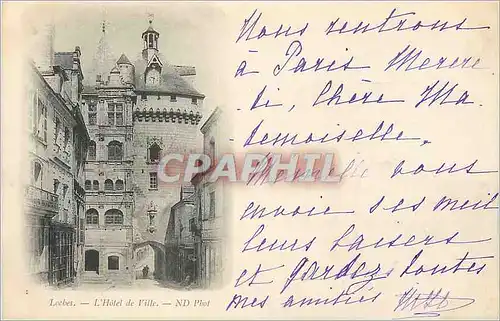 Nous rentrons
à Paris Mercre
di, Chère Ma
demoiselle.
vous
envoie ses meil
leurs baisers
et gardez toutes
mes amitiés
CPAPHIL
1
Loches. — L'Hôtel de Ville. — ND Phot